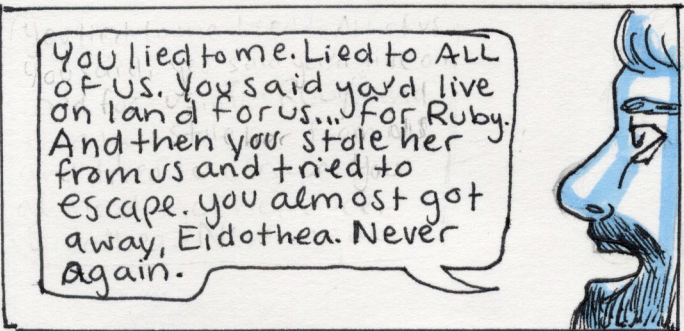 You lied to me. Lied to ALL
of us. You said ya'd live
on land for us... for Ruby.
And then you stole her
from us and tried to
escape. you almost got
away, Eidothea. Never
again.